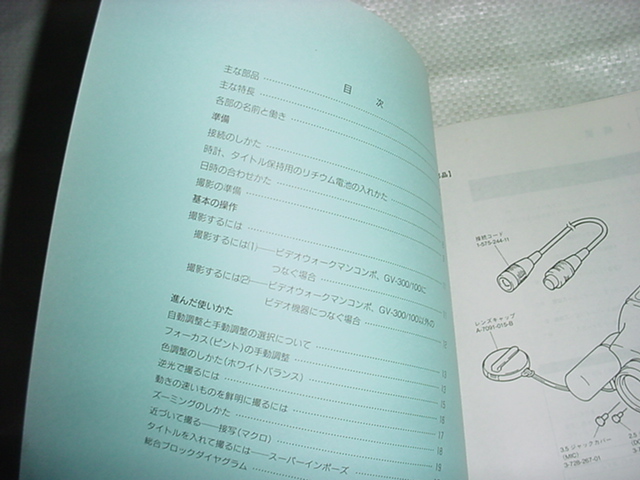 目 次
主な部品
主な特長
各部の名前と働き
準備
接続のしかた
時計、タイトル保持用のリチウム電池の入れかた
日時の合わせかた
撮影の準備
基本の操作
撮影するには
撮影するには(1)──ビデオウォークマンコンポ、GV-300/100に
つなぐ場合
撮影するには(2)──ビデオウォークマンコンポ、GV-300/100以外の
ビデオ機器につなぐ場合
進んだ使いかた
自動調整と手動調整の選択について
フォーカス(ピント)の手動調整
色調整のしかた(ホワイトバランス) 14
逆光で撮るには 13
動きの速いものを鮮明に撮るには 15
ズーミングのしかた 16
近づいて撮る──接写(マクロ) 17
タイトルを入れて撮るには──スーパーインポーズ 18
総合ブロックダイヤグラム 19
接続コード
1-575-244-11
レンズキャップ
A-7091-015-B
3.5 ジャックカバー
(MIC)
3-728-267-01